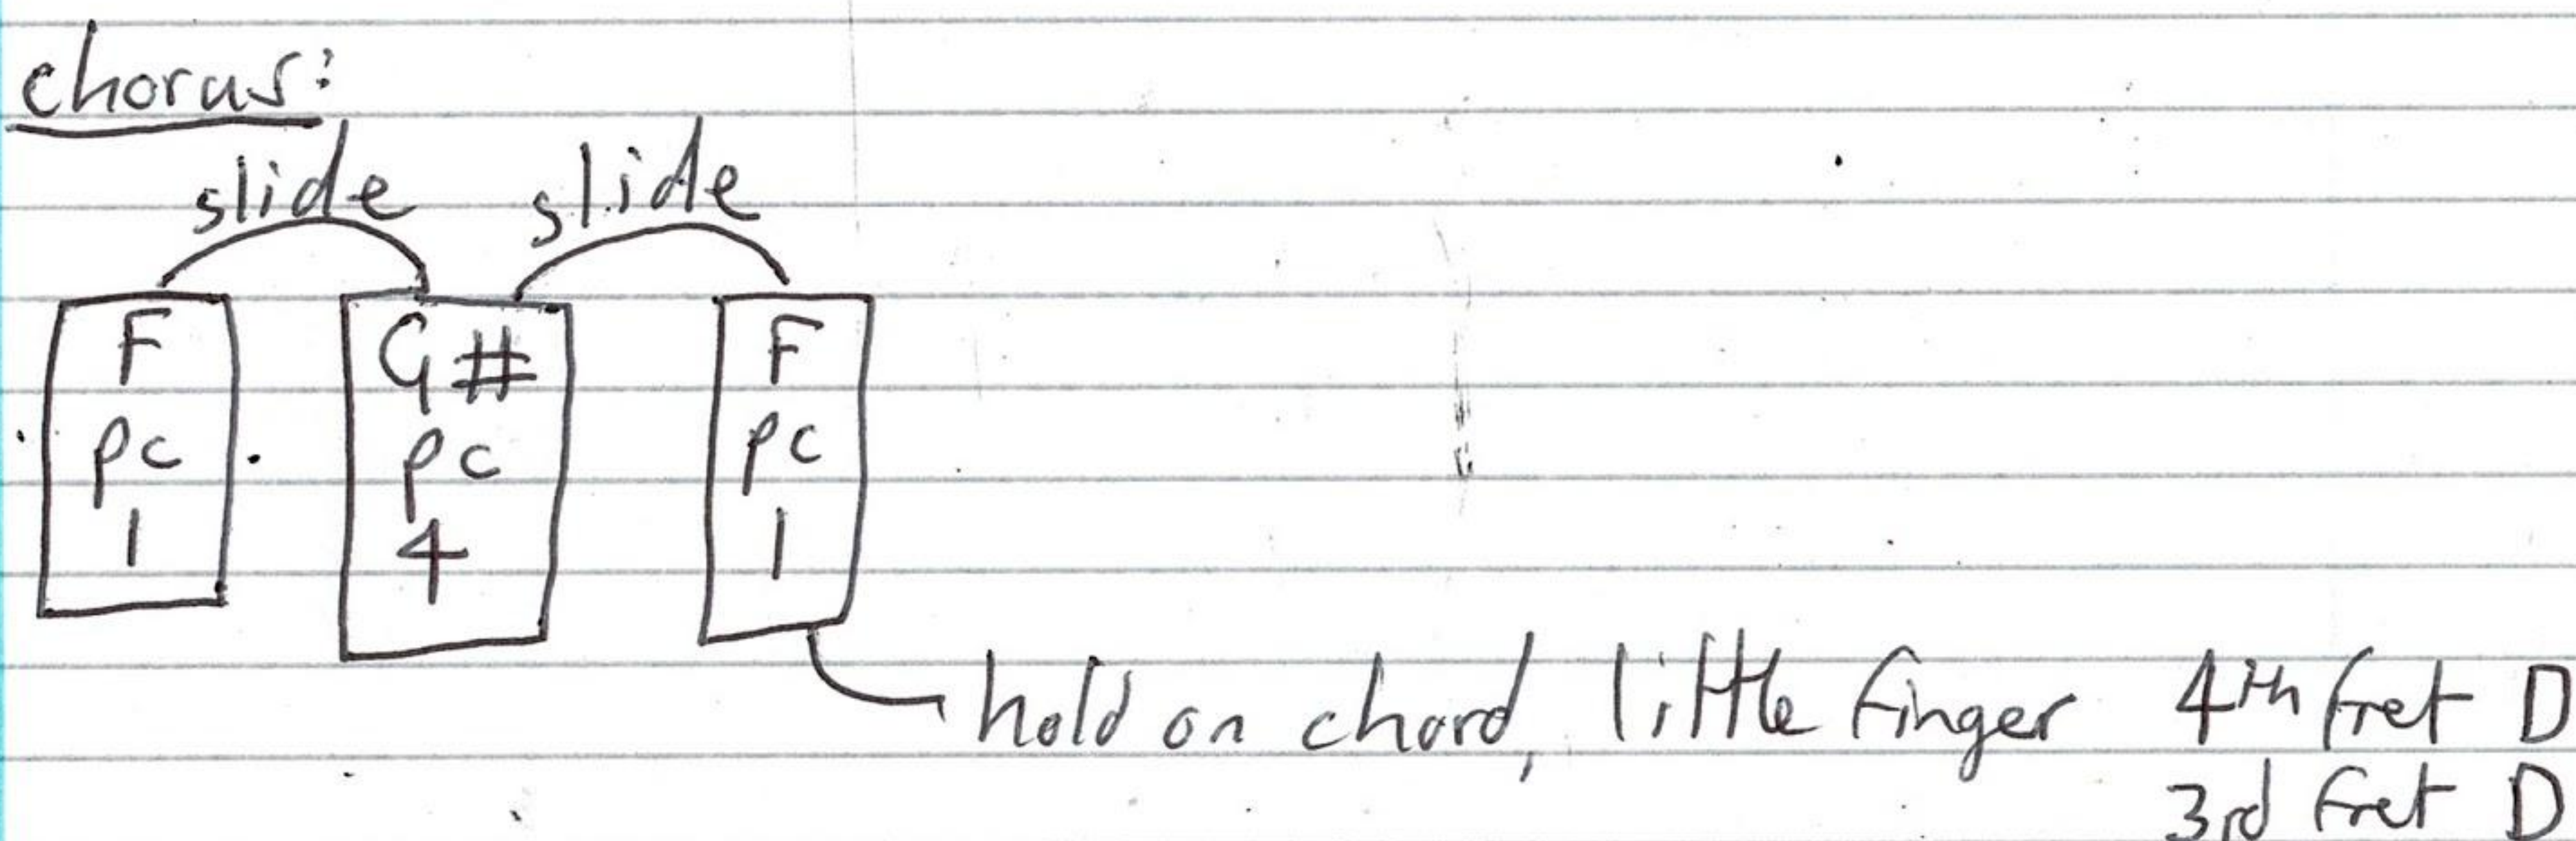 chorus:
slide slide
F G# F
pc pc pc
1 4 1
hold on chord, little finger 4th fret D
3rd fret D